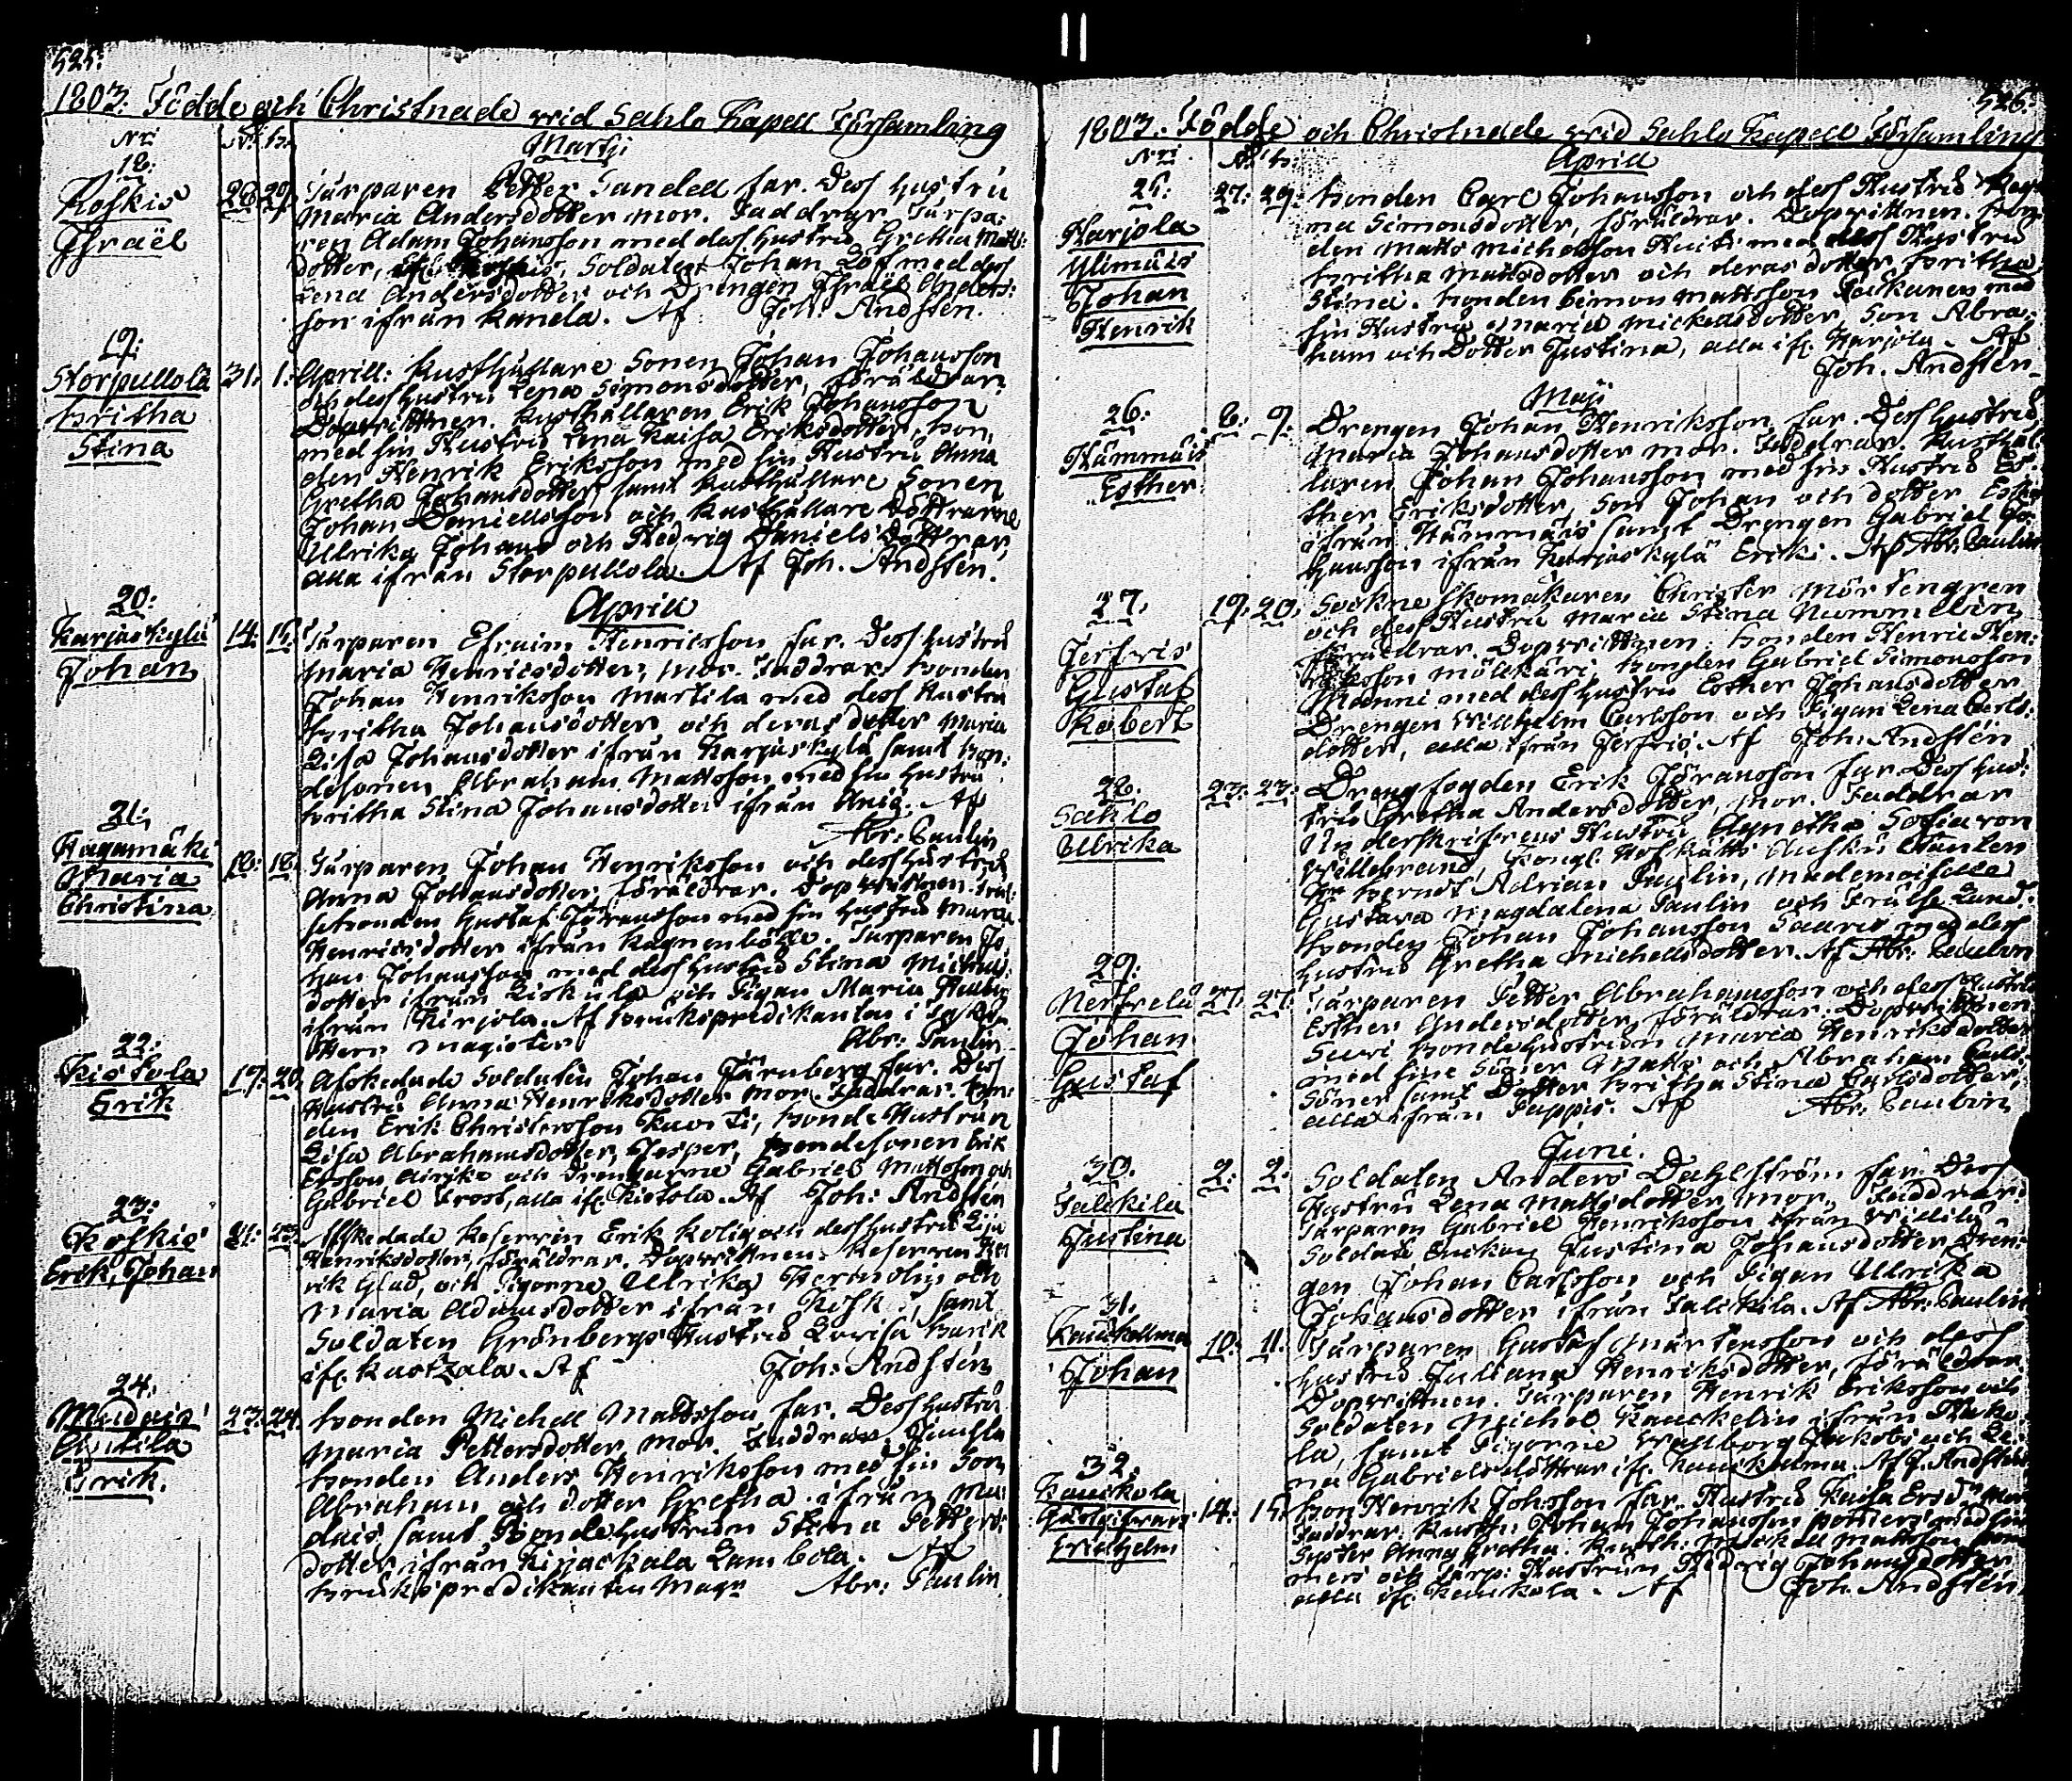 525:
1803. Födde och Christnade vid Sahlo Kapell Församling
Nri
N: b.
Martii
18:
Koskis
Israël
28 29
Torparen Petter Sandell far. Dess hustru
Maria Andersdotter mor. Faddrar Torpa:
ren Adam Johansson med dess hustru Gretha Matts
dotter, Soldaten Johan Löf med dess
Lena Andersdotter och Drengen Israël Anders:
son ifrån Kanela. Af Joh: Andstén.
19:
Storpullola
Britha
Stina
31. 1.
Aprill: Rusthållare Sonen Johan Johansson
och dess hustru Lena Simonsdotter, föräldrar.
Dopvittnen. Rusthållaren Erik Johansson
med sin Hustru Lena Kaisa Eriksdotter, Bon:
den Henrik Eriksson med sin Hustru Anna
Gretha Johansdotter, samt Rusthållare Sonen
Johan Daniellsson och Rusthållare Döttrarne
Ulrika Johans och Hedvig Daniels Döttrar,
alla ifrån Storpullola. Af Joh. Andstén.
Aprill
20:
Karjaskylä
Johan
14: 15.
Torparen Efraim Henricsson far. Dess hustru
Maria Henricsdotter, mor. Faddrar, bonden
Johan Henriksson Martila med dess hustru
Britha Johansdotter och deras dotter Maria
Lisa Johansdotter ifrån Karjaskylä samt bon:
desonen Abraham Mattsson med sin hustru
Britha Stina Johansdotter ifrån Anis. Af
Abr: Paulin
21:
Hagamäki
Maria
Christina
16: 18.
Torparen Johan Henriksson och dess hustru
Anna Johansdotter, föräldrar. Dopvittnen.
bonden Gustaf Göransson med sin hustru Maria
Henricsdotter ifrån Torparen Jo:
han Johansson med dess hustru Stina Michels:
dotter ifrån och Pigan Maria
ifrån Kirjola. Af Brukspredikanten i
Herr Magister Abr: Paulin
22:
Kistola
Erik
17: 20.
Afskedade Soldaten Johan Järnberg far. Dess
Hustru Anna Henriksdotter mor. Faddrar. Bon:
den Erik Christersson, Bonde Hustrun
Lisa Abrahamsdotter, Jesper, Bondesonen Erik
Ersson och Drengarne Gabriel Mattsson och
Gabriel Frost, alla ifr. Kistola. Af Joh: Andstén
23:
Koskis
Erik, Johan
21: 23.
Afskedade Reserven Erik Rolig och dess hustru Lisa
Henriksdotter, föräldrar. Dopvittnen. Reserven Hen
rik Glad, och Pigorne Ulrika Herindin och
Maria Adamsdotter ifrån Koskis, samt
Soldaten Grönbergs Hustru Lovisa
ifr. Af Joh: Andstén
24.
Mudais
Antila
Erik.
23. 24.
Bonden Michell Mattsson, far. Dess hustru
Maria Pettersdotter, mor. Faddrar.
bonden Anders Henriksson med sin Son
Abraham och dotter Gretha ifrån Mu
dais, samt Bondehustrun Stina Petters:
dotter ifrån Kirjaskala Lambola. Af
Brukspredikanten Magr Abr: Paulin
526:
1803. Födde och Christnade vid Sahlo Kapell Församling
Nri
N: b:
Aprill
25:
Harjola
Ylimäis
Johan
Henrik
27: 29.
Bonden Carl Johansson och dess Hustru Regi
na Simonsdotter, föräldrar. Dopvittnen. Bon:
den Matts Michelsson med dess Hustru
Britha Mattsdotter och deras dotter Britha
Stina. Bonden Simon Mattsson med
sin Hustru Maria Mickellsdotter, Son Abra:
ham och Dotter Justina, alla ifr. Harjola. Af
Joh. Andstén
Maji
26:
Hämmäis
Esther
6: 9.
Drengen Johan Henriksson, far. Dess hustru
Maria Johansdotter mor. Faddrar. Rusthål
laren Johan Johansson med sin Hustru Es:
ther Eriksdotter, Son Johan och dotter Esther
ifrån Hämmäis samt Drengen Gabriel Jo:
hansson ifrån Karjaskylä Erik. Af Abr: Paulin
27.
Jerfvis
Gustaf
Robert
19. 20.
Sockne skomakaren Christer Mörtengren
och dess Hustru Maria Stina Nummelin
föräldrar. Dopvittnen: bonden Henric Hen:
riksson Mälkäri, bonden Gabriel Simonsson
Manni med dess hustru Esther Johansdotter
Drengen Willhelm Carlsson och Pigan Lena Carls:
dotter, alla ifrån Jerfvis. Af Joh: Andstén
28.
Sahlo
Ulrika
23. 23.
Drengfogden Erik Göransson far. Dess hus:
tru Gretha Andersdotter, mor. Faddrar
Underskrifvens Hustru Agnetha Sofia von
Willebrand, Kongl. Hofrätts
Hr Berndt Adrian Paulin, Mademoiselle
Gustava Magdalena Paulin och Frälse Land:
bonden Johan Johansson Saaris med dess
hustru Gretha Michellsdotter. Af Abr: Paulin
29:
Johan
Gustaf
27. 27.
Torparen Petter Abrahamsson och dess Hustru
Esther Andersdotter, föräldrar. Dopvittnen
Suvi Bondehustrun Maria Henriksdotter
med sine Söner Matts och Abraham Carls:
Söner samt Dotter Britha Stina Carlsdotter,
alla ifrån Pappis. Af Abr: Paulin
Juni.
30.
Palikila
Justina
2. 2.
Soldaten Anders Dahlström far. Dess
Hustru Lena Mattsdotter, mor. Faddrar.
Torparen Gabriel Henriksson ifrån
Soldats Enckan Justina Johansdotter, Dren:
gen Johan Carlsson och Pigan Ulrika
Johansdotter ifrån Palikila. Af Abr: Paulin
31.
Johan
10: 11.
Torparen Gustaf Mårtensson och dess
hustru Juliana Henriksdotter, föräldrar
Dopvittnen. Torparen Henrik Eriksson och
Soldaten Michel Kauckelin ifrån
la, samt Pigorne Wallborg Jakobs och Le:
na Gabriels döttrar ifr. Af J. Andstén
32.
Kauckola
Wilhelm
14: 15.
Bon Henrik Johsson far. Hustru Kaisa
Faddrar: Rusth. Johan Johansson med sin
Syster Anna Gretha. Rusth: Mickell Mattsson
och Torp: Hustrun Hedvig Johansdotter
alla ifr. Kauckola. Af Joh. Andstén.